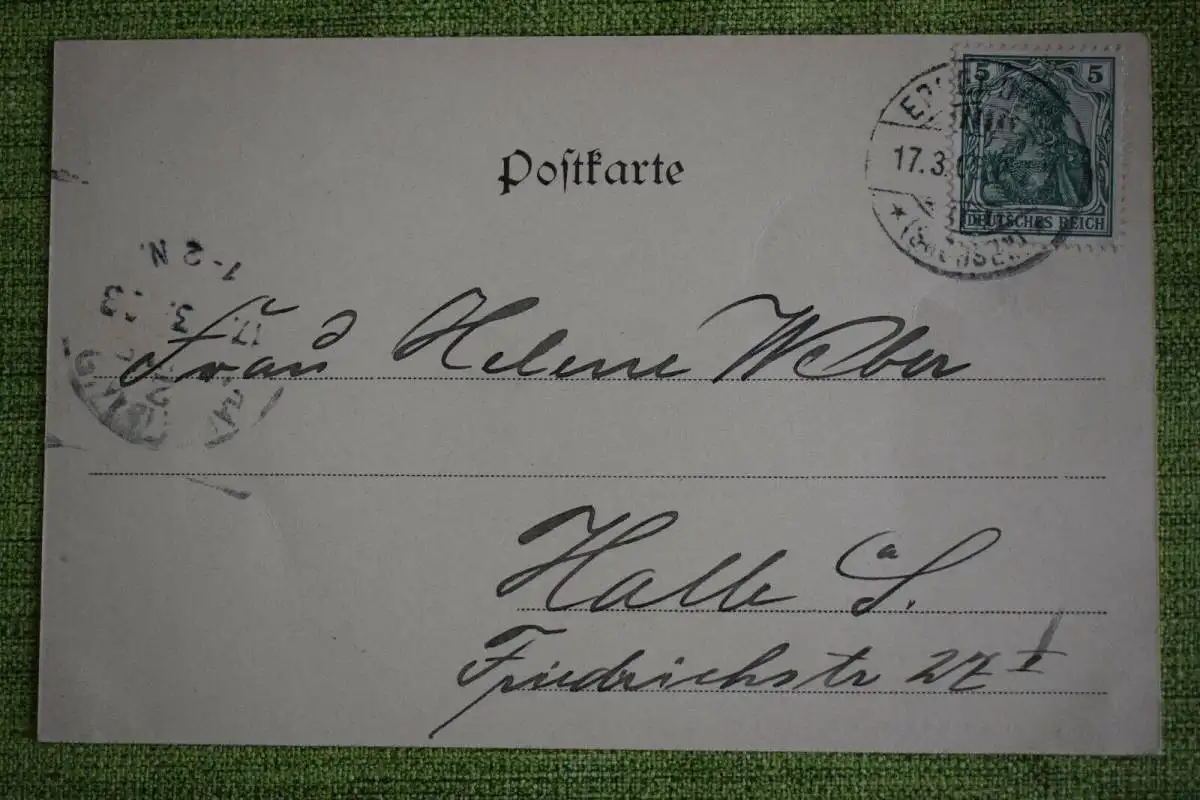 Postkarte
5 5
DEUTSCHES REICH
17.3.
(SACHSEN)
1-2 N.
17. 3. 03
Frau Helene Weber
Halle a S.
Friedrichstr 27 I